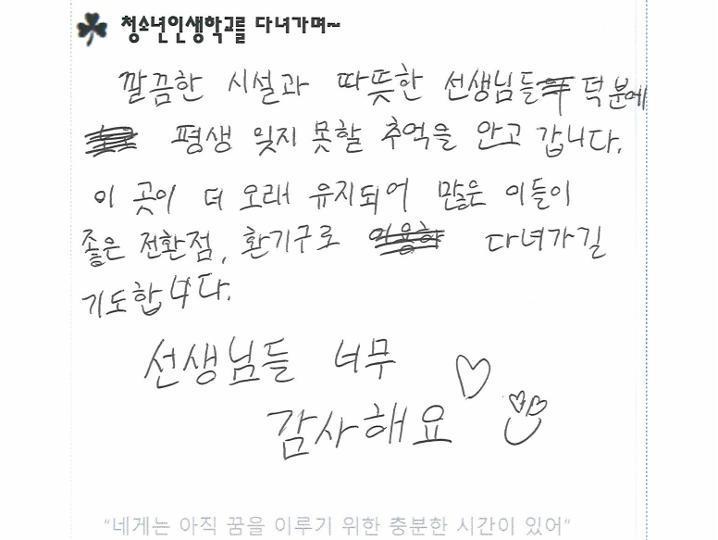 청소년인생학교를 다녀가며~
깔끔한 시설과 따뜻한 선생님들 덕분에
평생 잊지 못할 추억을 안고 갑니다.
이 곳이 더 오래 유지되어 많은 이들이
좋은 전환점, 환기구로 다녀가길
기도합니다.
선생님들 너무
감사해요
“네게는 아직 꿈을 이루기 위한 충분한 시간이 있어”